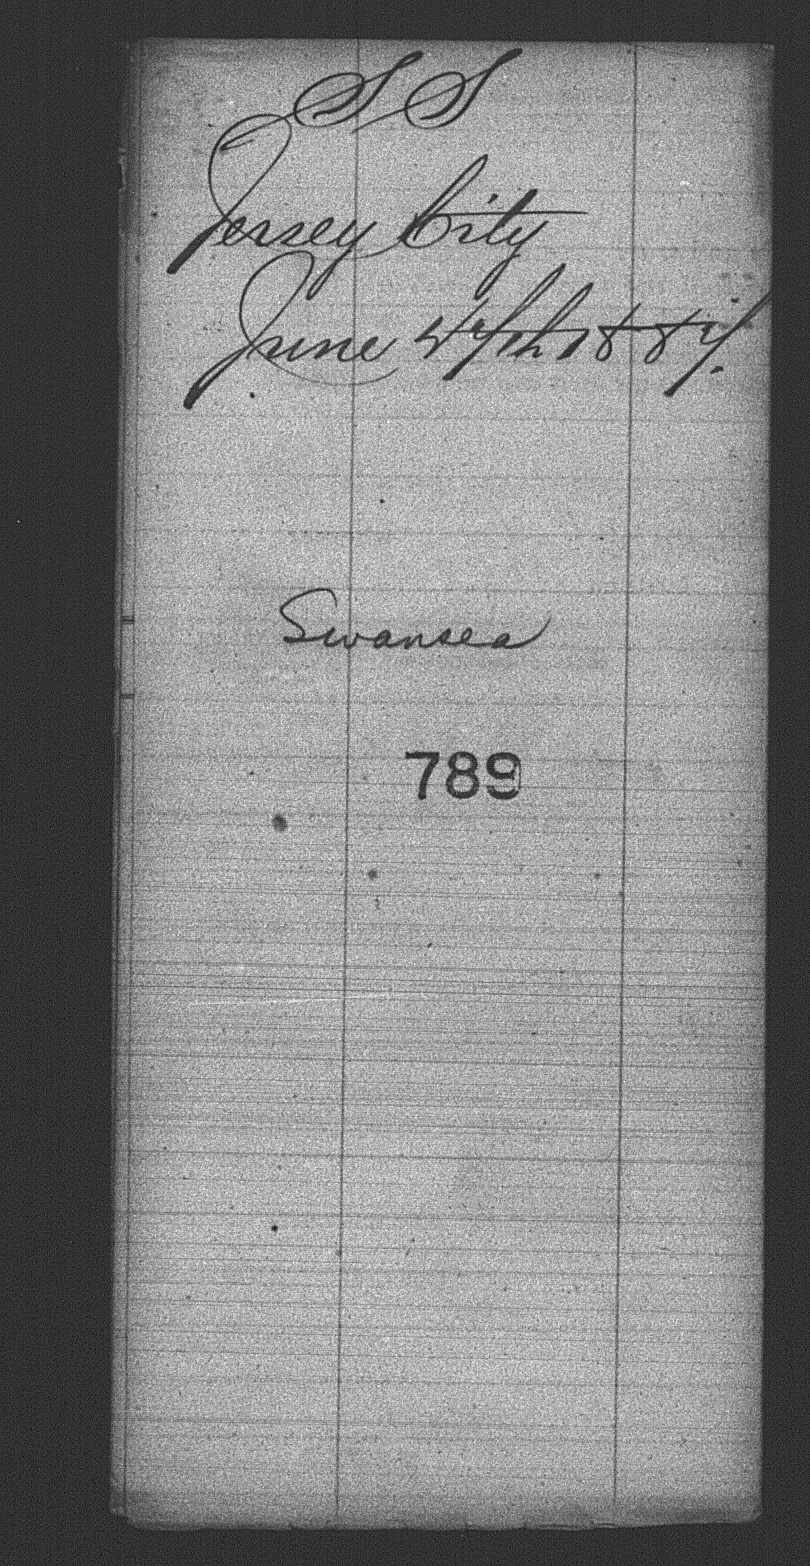 SS
Jersey City
June 4th 1889.
Swansea
789